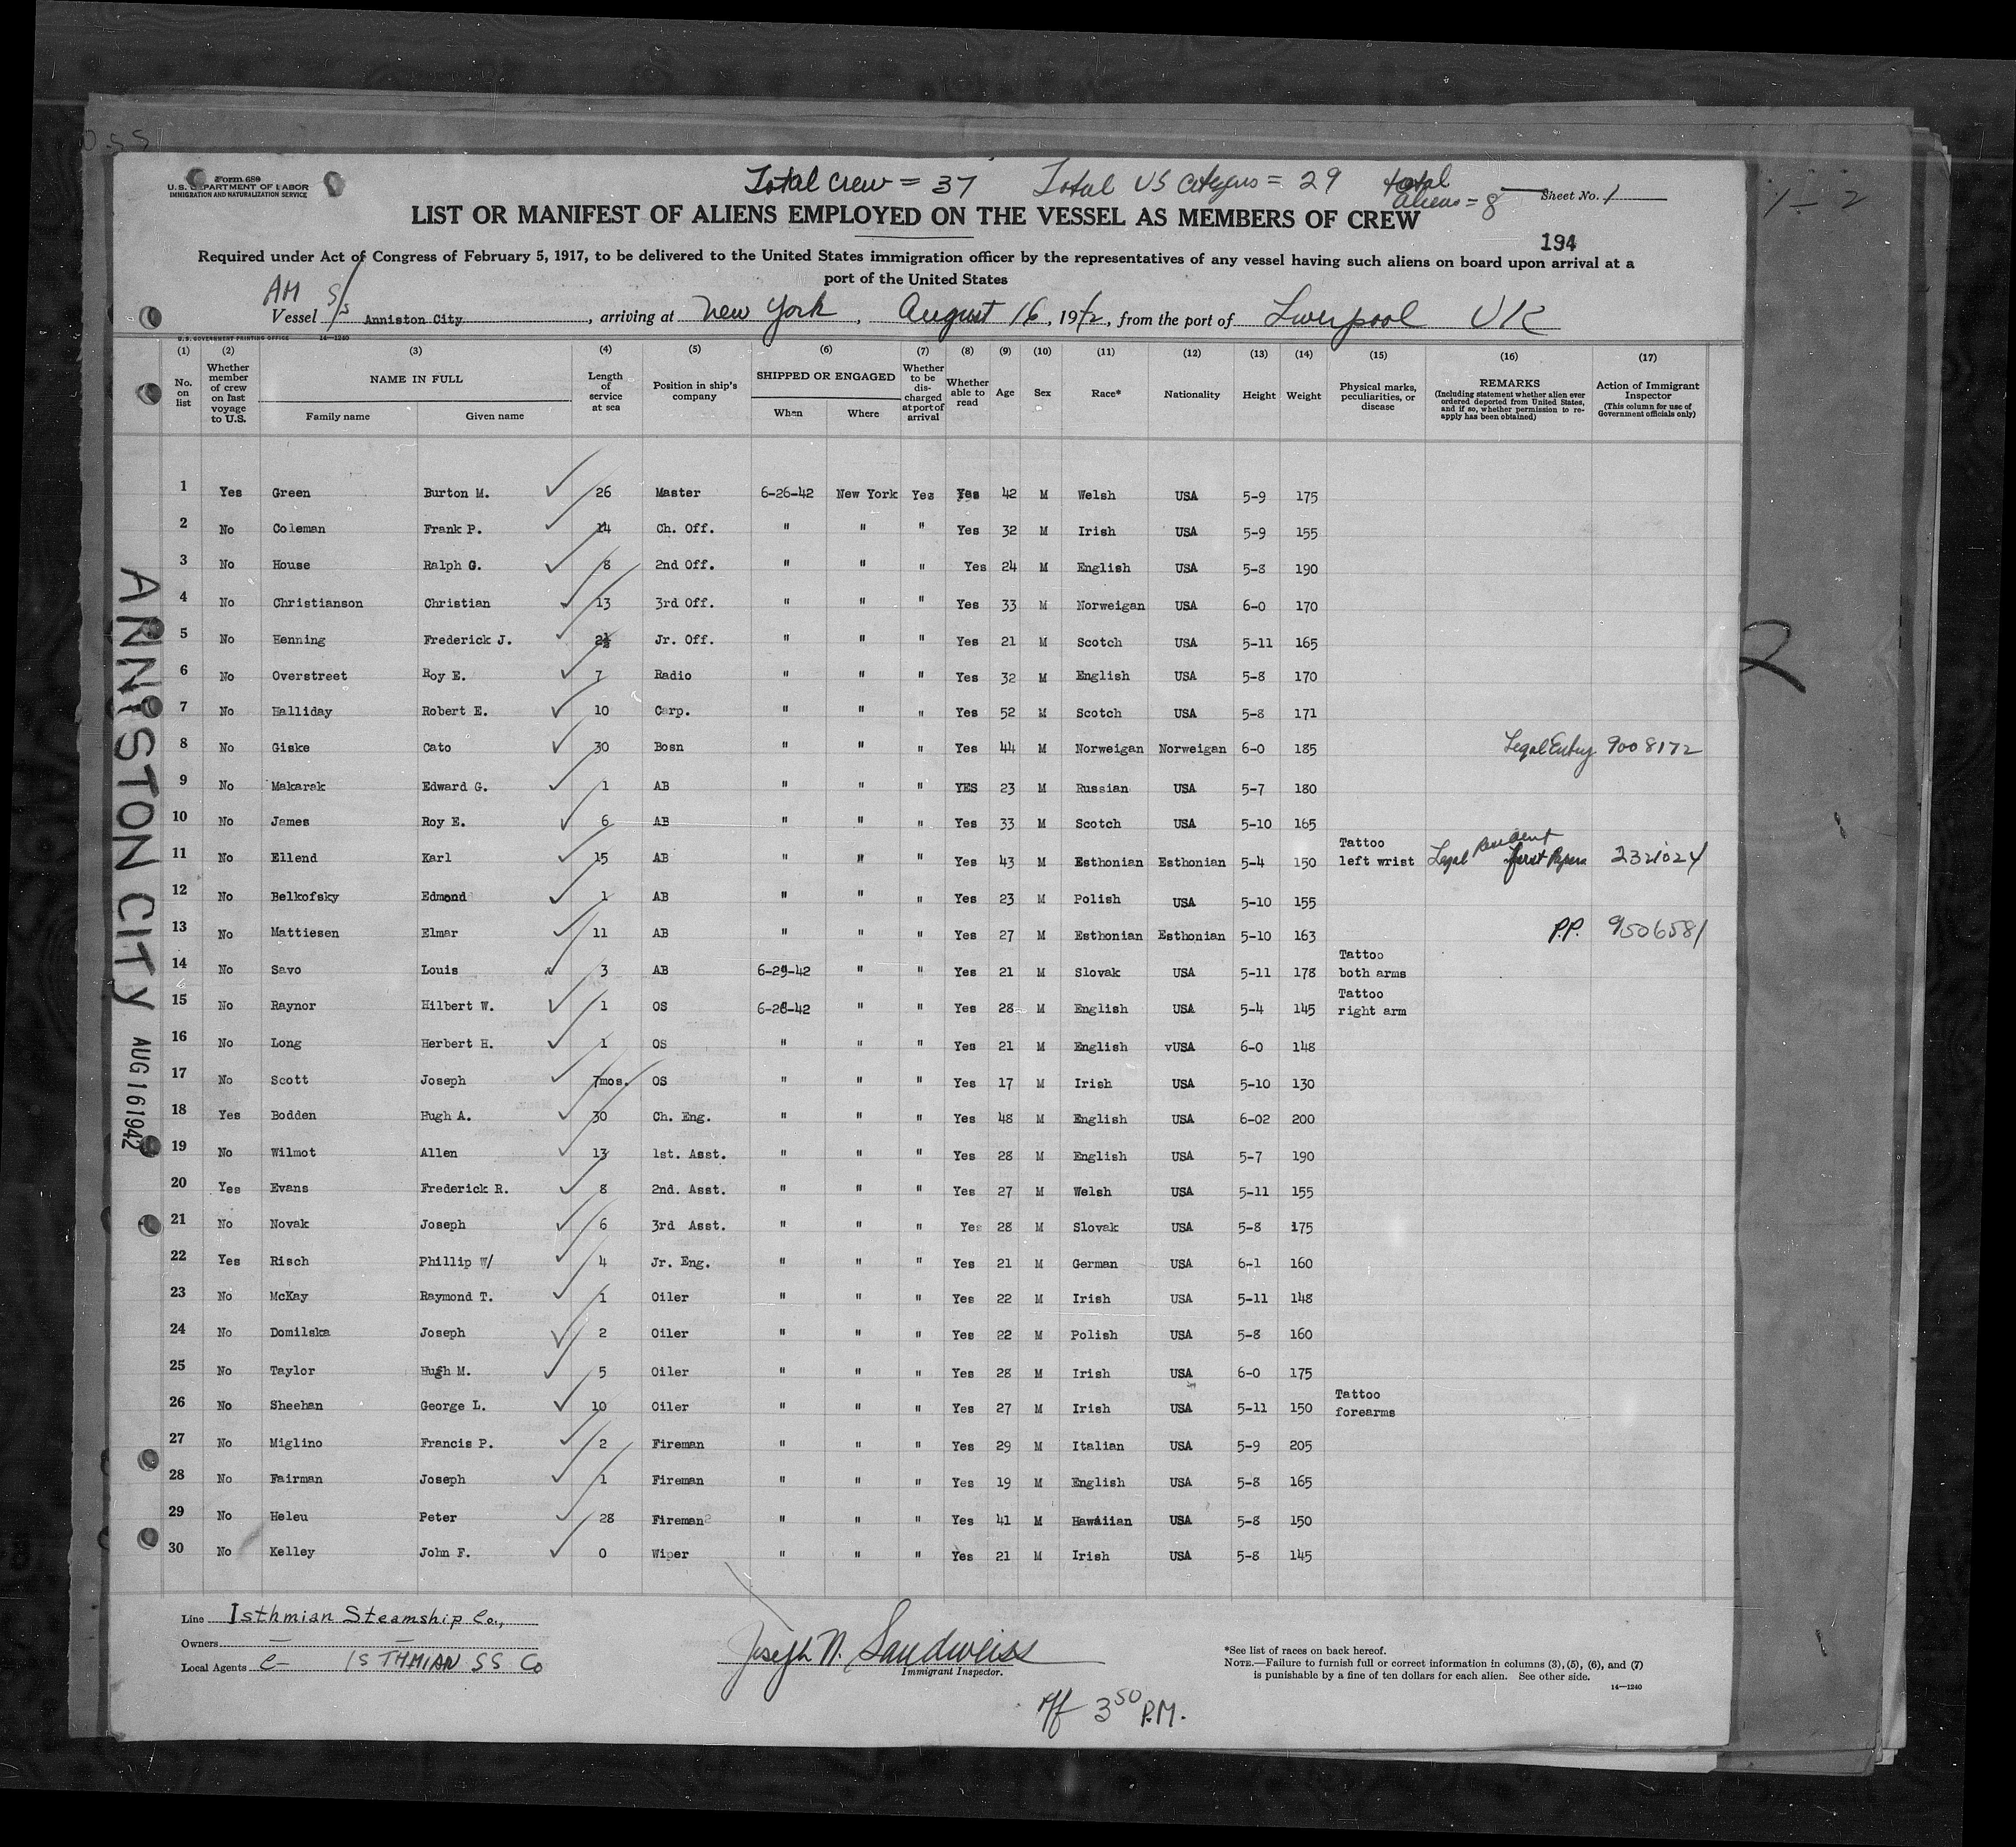 Form 689
U.S. DEPARTMENT OF LABOR
IMMIGRATION AND NATURALIZATION SERVICE
Total Crew = 37 Total US Citizens = 29 total aliens = 8
Sheet No. 1
LIST OR MANIFEST OF ALIENS EMPLOYED ON THE VESSEL AS MEMBERS OF CREW
194
Required under Act of Congress of February 5, 1917, to be delivered to the United States immigration officer by the representatives of any vessel having such aliens on board upon arrival at a
port of the United States
AM S/S
Vessel Anniston City, arriving at New York, August 16, 1942, from the port of Liverpool UK
U.S. GOVERNMENT PRINTING OFFICE 14—1240
(1) (2) (3) (4) (5) (6) (7) (8) (9) (10) (11) (12) (13) (14) (15) (16) (17)
No. on list
Whether member of crew on last voyage to U.S.
NAME IN FULL
Family name Given name
Length of service at sea
Position in ship's company
SHIPPED OR ENGAGED
When Where
Whether to be discharged at port of arrival
Whether able to read
Age
Sex
Race*
Nationality
Height
Weight
Physical marks, peculiarities, or disease
REMARKS
(Including statement whether alien ever ordered deported from United States, and if so, whether permission to reapply has been obtained)
Action of Immigrant Inspector
(This column for use of Government officials only)
1 Yes Green Burton M. ✓ 26 Master 6-26-42 New York Yes Yes 42 M Welsh USA 5-9 175
2 No Coleman Frank P. ✓ 14 Ch. Off. " " " Yes 32 M Irish USA 5-9 155
3 No House Ralph G. ✓ 8 2nd Off. " " " Yes 24 M English USA 5-8 190
4 No Christianson Christian ✓ 13 3rd Off. " " " Yes 33 M Norweigan USA 6-0 170
5 No Henning Frederick J. ✓ 2½ Jr. Off. " " " Yes 21 M Scotch USA 5-11 165
6 No Overstreet Roy E. ✓ 7 Radio " " " Yes 32 M English USA 5-8 170
7 No Halliday Robert E. ✓ 10 Carp. " " " Yes 52 M Scotch USA 5-8 171
8 No Giske Cato ✓ 30 Bosn " " " Yes 44 M Norweigan Norweigan 6-0 185 Legal Entry 9008172
9 No Makarak Edward G. ✓ 1 AB " " " YES 23 M Russian USA 5-7 180
10 No James Roy E. ✓ 6 AB " " " Yes 33 M Scotch USA 5-10 165
11 No Ellend Karl ✓ 15 AB " " " Yes 43 M Esthonian Esthonian 5-4 150 Tattoo left wrist Legal Resident first Papers 2321024
12 No Belkofsky Edmond ✓ 1 AB " " " Yes 23 M Polish USA 5-10 155
13 No Mattiesen Elmar ✓ 11 AB " " " Yes 27 M Esthonian Esthonian 5-10 163 P.P. 9506581
14 No Savo Louis ✓ 3 AB 6-29-42 " " Yes 21 M Slovak USA 5-11 178 Tattoo both arms
15 No Raynor Hilbert W. ✓ 1 OS 6-26-42 " " Yes 28 M English USA 5-4 145 Tattoo right arm
16 No Long Herbert H. ✓ 1 OS " " " Yes 21 M English vUSA 6-0 148
17 No Scott Joseph ✓ 7mos. OS " " " Yes 17 M Irish USA 5-10 130
18 Yes Bodden Hugh A. ✓ 30 Ch. Eng. " " " Yes 48 M English USA 6-02 200
19 No Wilmot Allen ✓ 13 1st. Asst. " " " Yes 28 M English USA 5-7 190
20 Yes Evans Frederick R. ✓ 8 2nd. Asst. " " " Yes 27 M Welsh USA 5-11 155
21 No Novak Joseph ✓ 6 3rd Asst. " " " Yes 28 M Slovak USA 5-8 175
22 Yes Risch Phillip W/ ✓ 4 Jr. Eng. " " " Yes 21 M German USA 6-1 160
23 No McKay Raymond T. ✓ 1 Oiler " " " Yes 22 M Irish USA 5-11 148
24 No Domilska Joseph ✓ 2 Oiler " " " Yes 22 M Polish USA 5-8 160
25 No Taylor Hugh M. ✓ 5 Oiler " " " Yes 28 M Irish USA 6-0 175
26 No Sheehan George L. ✓ 10 Oiler " " " Yes 27 M Irish USA 5-11 150 Tattoo forearms
27 No Miglino Francis P. ✓ 2 Fireman " " " Yes 29 M Italian USA 5-9 205
28 No Fairman Joseph ✓ 1 Fireman " " " Yes 19 M English USA 5-8 165
29 No Heleu Peter ✓ 28 Fireman " " " Yes 41 M Hawaiian USA 5-8 150
30 No Kelley John F. ✓ 0 Wiper " " " Yes 21 M Irish USA 5-8 145
ANNISTON CITY AUG 16 1942
Line Isthmian Steamship Co.,
Owners — —
Local Agents ISTHMIAN SS Co
Joseph N. Sandweiss
Immigrant Inspector.
3 50 P.M.
*See list of races on back hereof.
NOTE.—Failure to furnish full or correct information in columns (3), (5), (6), and (7)
is punishable by a fine of ten dollars for each alien. See other side.
14—1240
1 — 2
2